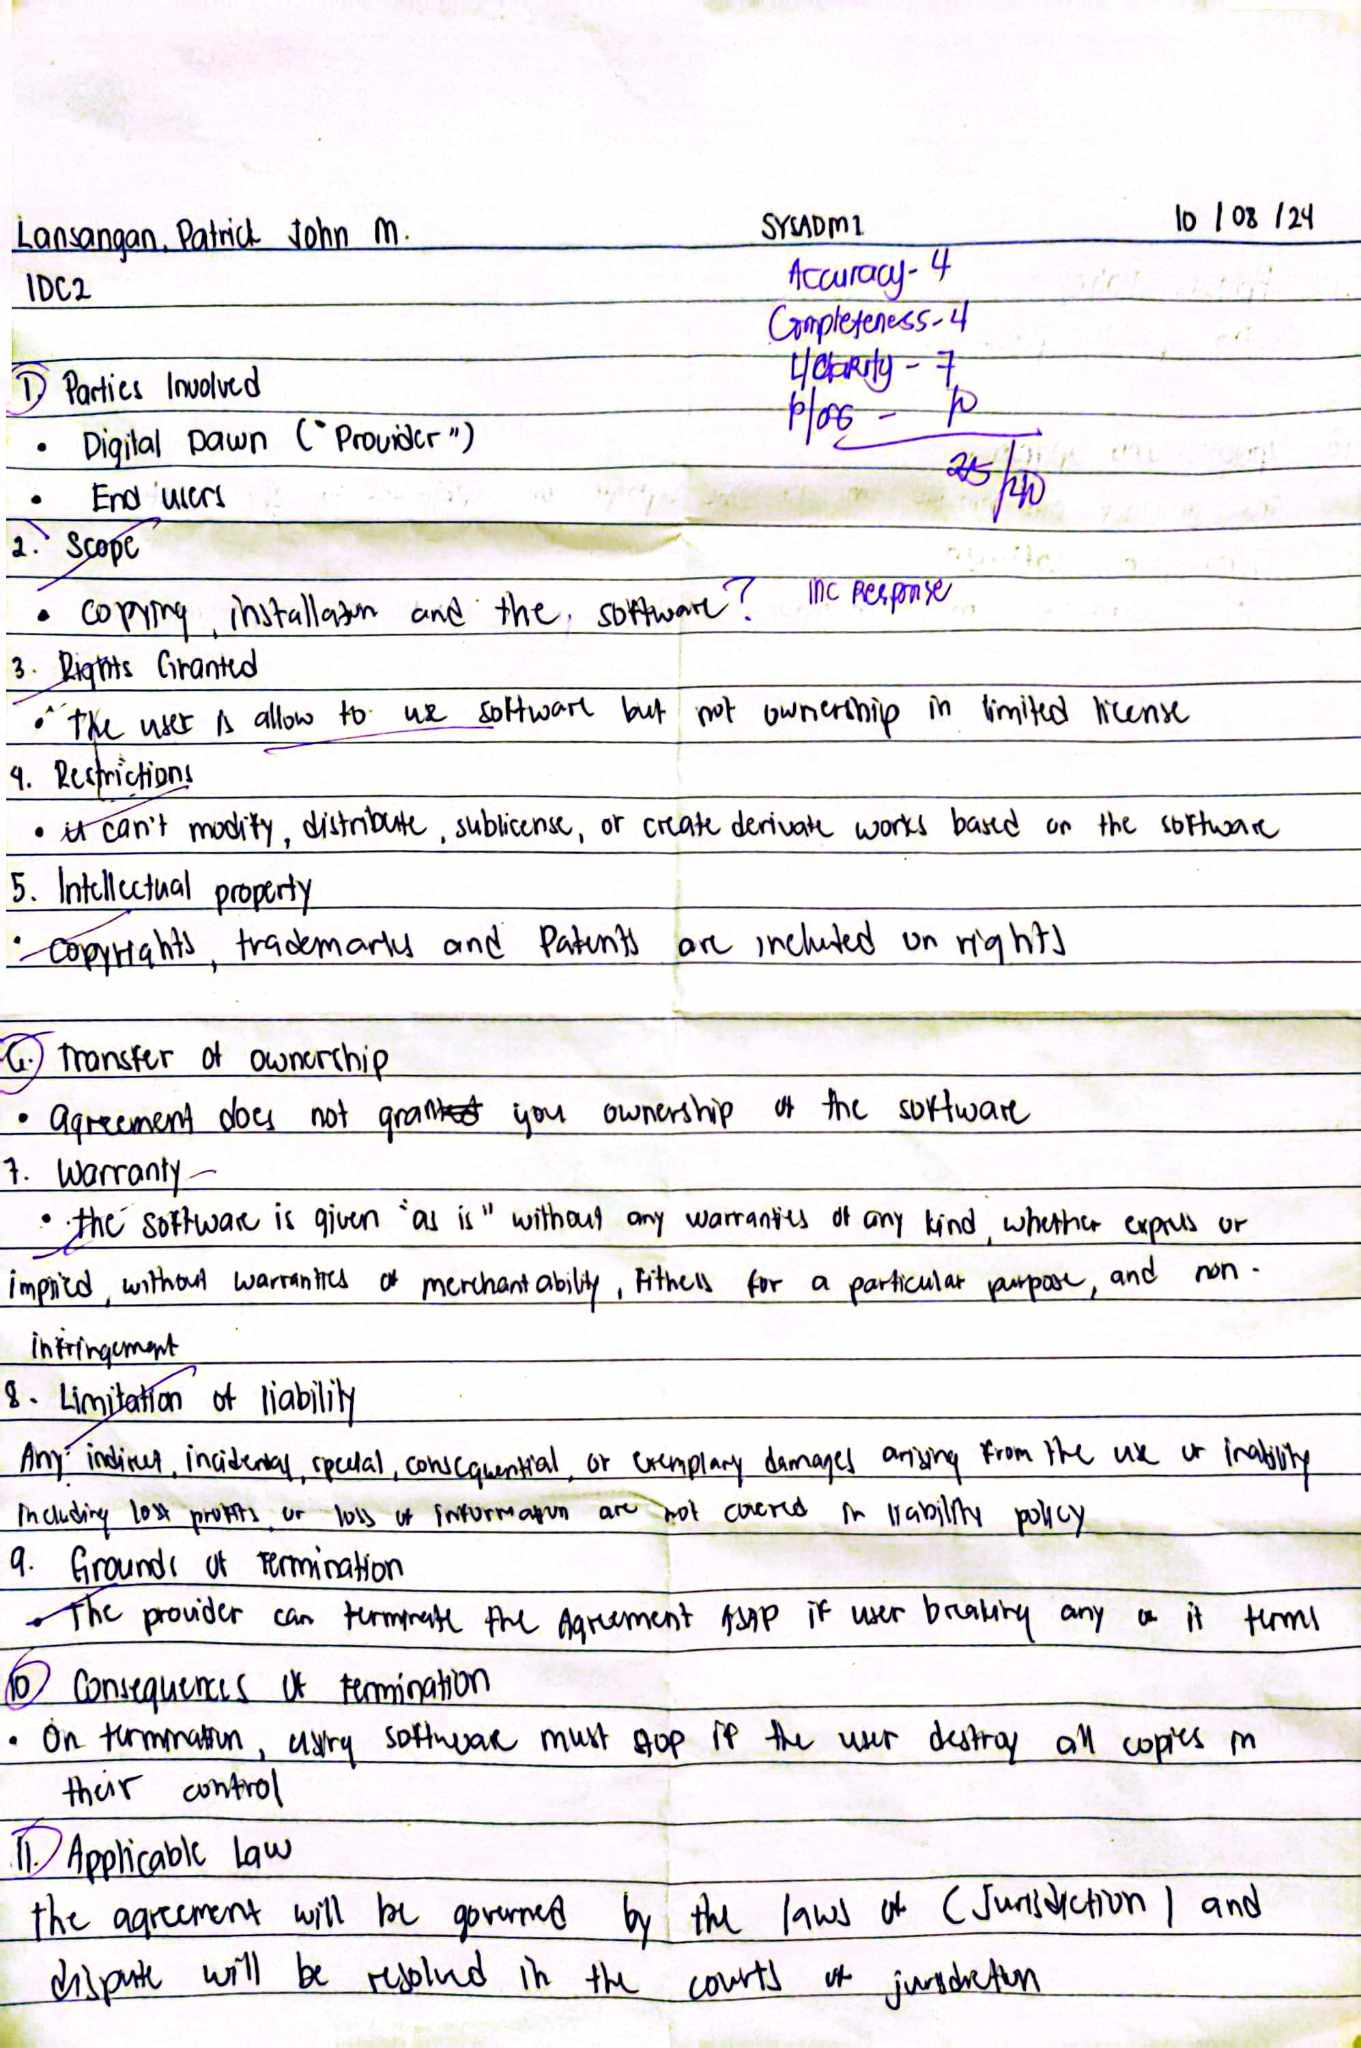 Lansangan, Patrick John M. SYSADM1 10/08/24
1DC2
Accuracy - 4
Completeness - 4
L/Clarity - 7
P/OG - 10
25/40
1. Parties Involved
• Digital Dawn ("Provider")
• End users
2. Scope
• Copying, installation and the software? inc Response
3. Rights Granted
• The user is allow to use software but not ownership in limited license
4. Restrictions
• it can't modify, distribute, sublicense, or create derivate works based on the software
5. Intellectual property
• Copyrights, trademarks and Patents are included on rights
6. Transfer of ownership
• agreement does not grant you ownership of the software
7. Warranty
• the software is given "as is" without any warranties of any kind, whether express or
implied, without warranties of merchantability, Fitness for a particular purpose, and non-
infringement
8. Limitation of liability
Any indirect, incidental, special, consequential, or exemplary damages arising from the use or inability
including lost profits, or loss of information are not covered in liability policy
9. Grounds of termination
• The provider can terminate the Agreement ASAP if user breaking any of it terms
10 Consequences of termination
• On termination, using software must stop if the user destroy all copies in
their control
11. Applicable Law
the agreement will be governed by the laws of (Jurisdiction) and
dispute will be resolved in the courts of jurisdiction